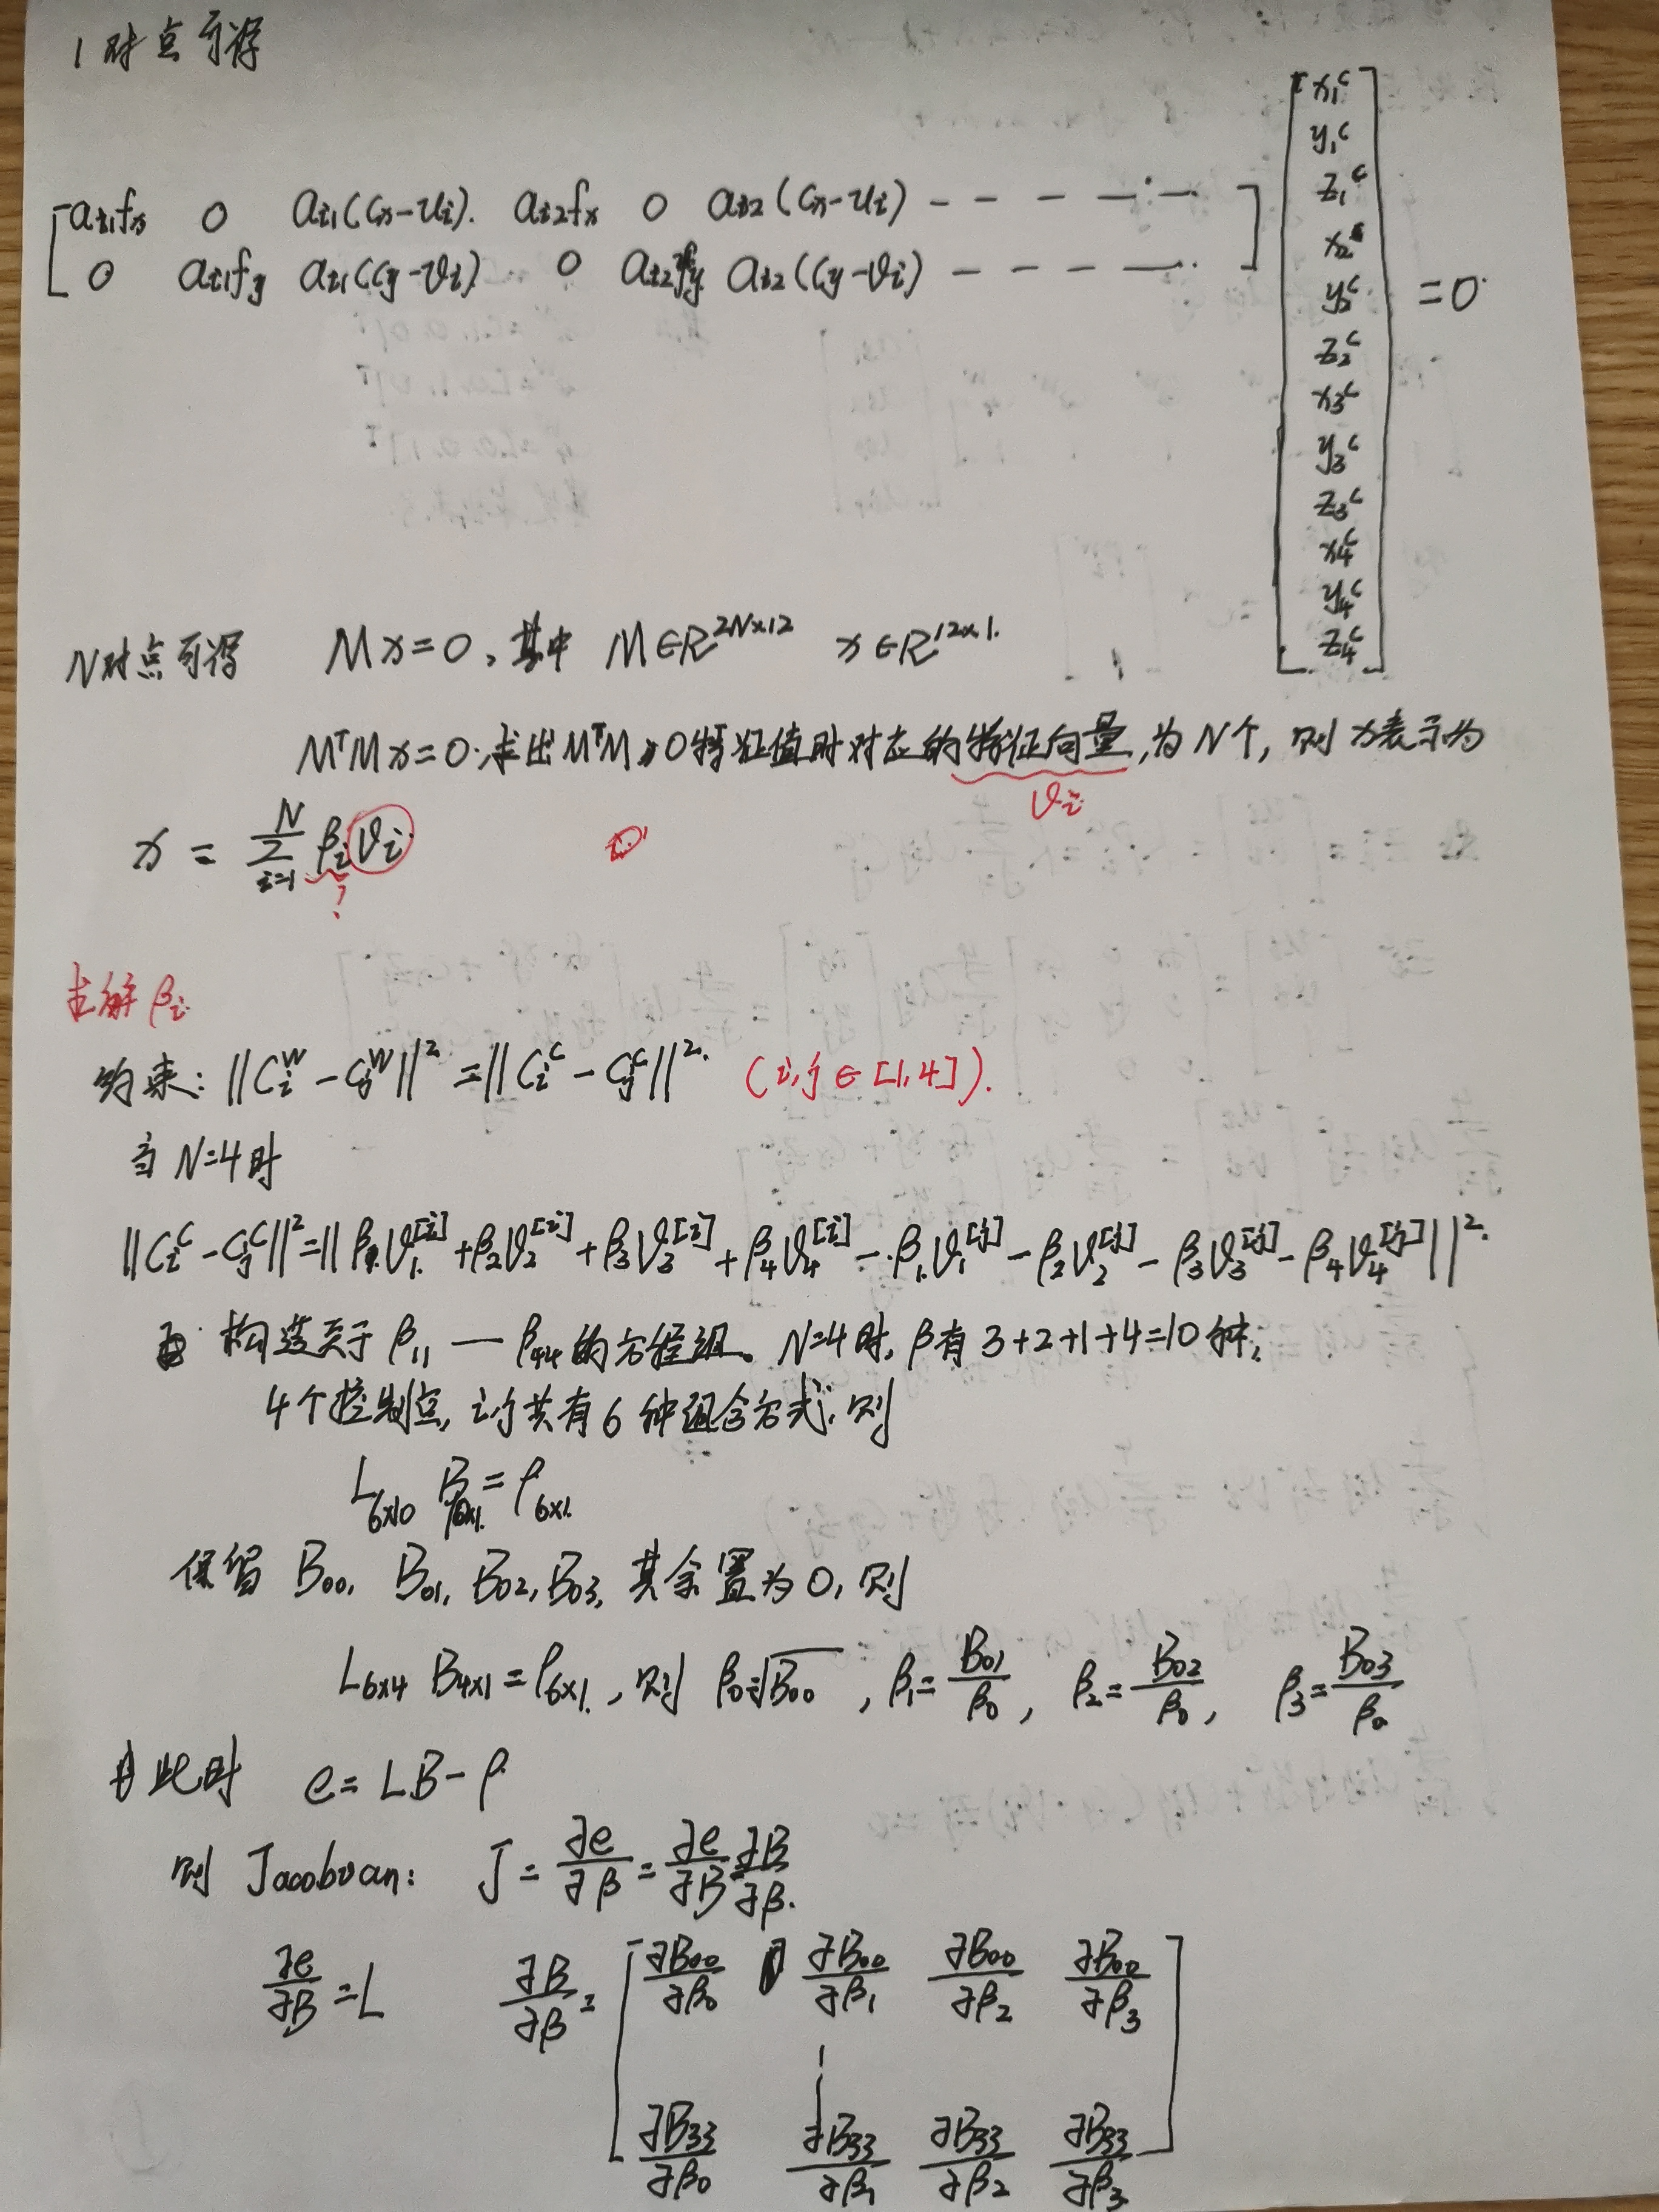 1对点可得
[ a_{i1}f_x 0 a_{i1}(c_x-u_i) a_{i2}f_x 0 a_{i2}(c_x-u_i) - - - - - -
0 a_{i1}f_y a_{i1}(c_y-v_i) 0 a_{i2}f_y a_{i2}(c_y-v_i) - - - - - ]
[ x_1^c
y_1^c
z_1^c
x_2^c
y_2^c
z_2^c
x_3^c
y_3^c
z_3^c
x_4^c
y_4^c
z_4^c ] = 0
N对点可得 Mx=0, 其中 M∈R^{2N×12} x∈R^{12×1}.
M^T M x=0. 求出M^T M 0特征值时对应的特征向量,为N个, 则x表示为
v_i
x = \sum_{i=1}^{N} β_i v_i
?
求解 β_i
约束: ||C_i^w - C_j^w||^2 = ||C_i^c - C_j^c||^2. (i,j ∈ [1,4]).
当 N=4时
||C_i^c - C_j^c||^2 = ||β_1 v_1^{[i]} + β_2 v_2^{[i]} + β_3 v_3^{[i]} + β_4 v_4^{[i]} - β_1 v_1^{[j]} - β_2 v_2^{[j]} - β_3 v_3^{[j]} - β_4 v_4^{[j]}||^2.
构造关于 β_{11} — β_{44}的方程组。N=4时, β有 3+2+1+4=10种,
4个控制点, ij共有6种组合方式, 则
L_{6×10} B_{10×1} = ρ_{6×1}
保留 B_{00}, B_{01}, B_{02}, B_{03}, 其余置为0, 则
L_{6×4} B_{4×1} = ρ_{6×1}, 则 β_0=√B_{00}, β_1=\frac{B_{01}}{β_0}, β_2=\frac{B_{02}}{β_0}, β_3=\frac{B_{03}}{β_0}
此时 e = LB - ρ
则 Jacobian: J = \frac{∂e}{∂β} = \frac{∂e}{∂B} \frac{∂B}{∂β}.
\frac{∂e}{∂B} = L \frac{∂B}{∂β} = [ \frac{∂B_{00}}{∂β_0} \frac{∂B_{00}}{∂β_1} \frac{∂B_{00}}{∂β_2} \frac{∂B_{00}}{∂β_3}
\frac{∂B_{33}}{∂β_0} \frac{∂B_{33}}{∂β_1} \frac{∂B_{33}}{∂β_2} \frac{∂B_{33}}{∂β_3} ]